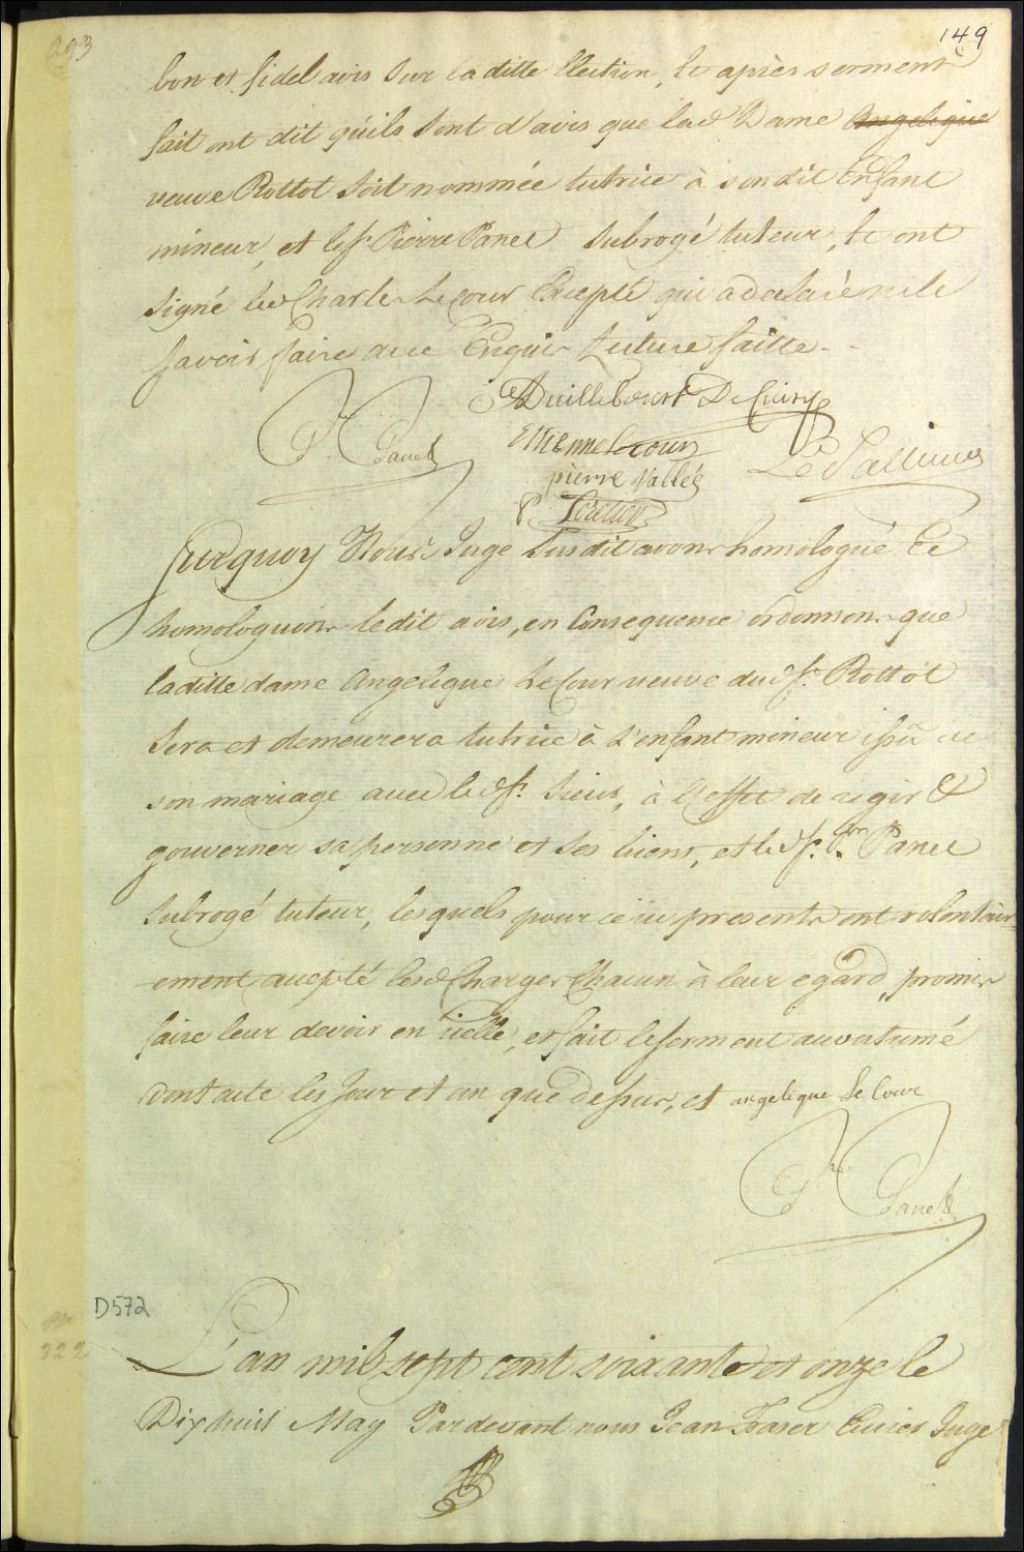 293
149
bon et fidel avis sur laditte Election, & après serment
fait ont dit qu'ils sont d'avis que lad Dame Angelique
veuve Rottot soit nommée tutrice à sondit Enfant
mineur, et le Sr. Pierre Panet subrogé tuteur, & ont
signé led Charles Lecour Excepté qui a declaré ne le
savoir faire de ce Enquis Lecture faitte.
Duillebourt De Cuisy
P. Panet
Etienne Lecour
pierre Vallée
Surquoy Nous Juge susdit avons homologué &
homologuons ledit avis, en Consequence ordonnons que
laditte dame Angelique LeCour veuve dud Sr. Rottot
sera et demeurera tutrice à L'enfant mineur issu de
son mariage avec led Sr. Sieur, à l'effet de regir &
gouverner sa personne et ses biens, et led Sr. Prre Panet
subrogé tuteur, lesquels pour ce icy presents ont volontair
-ement accepté lesd Charges Chacun à leur egard, promis
faire leur devoir en icelle, et fait le serment accoutumé
Dont acte les Jour et an que dessus, et angelique Le Cour
Panet
D572
322
L'an mil sept cent soixante et onze le
Dixhuit May Pardevant nous Jean Fraser Ecuier Juge